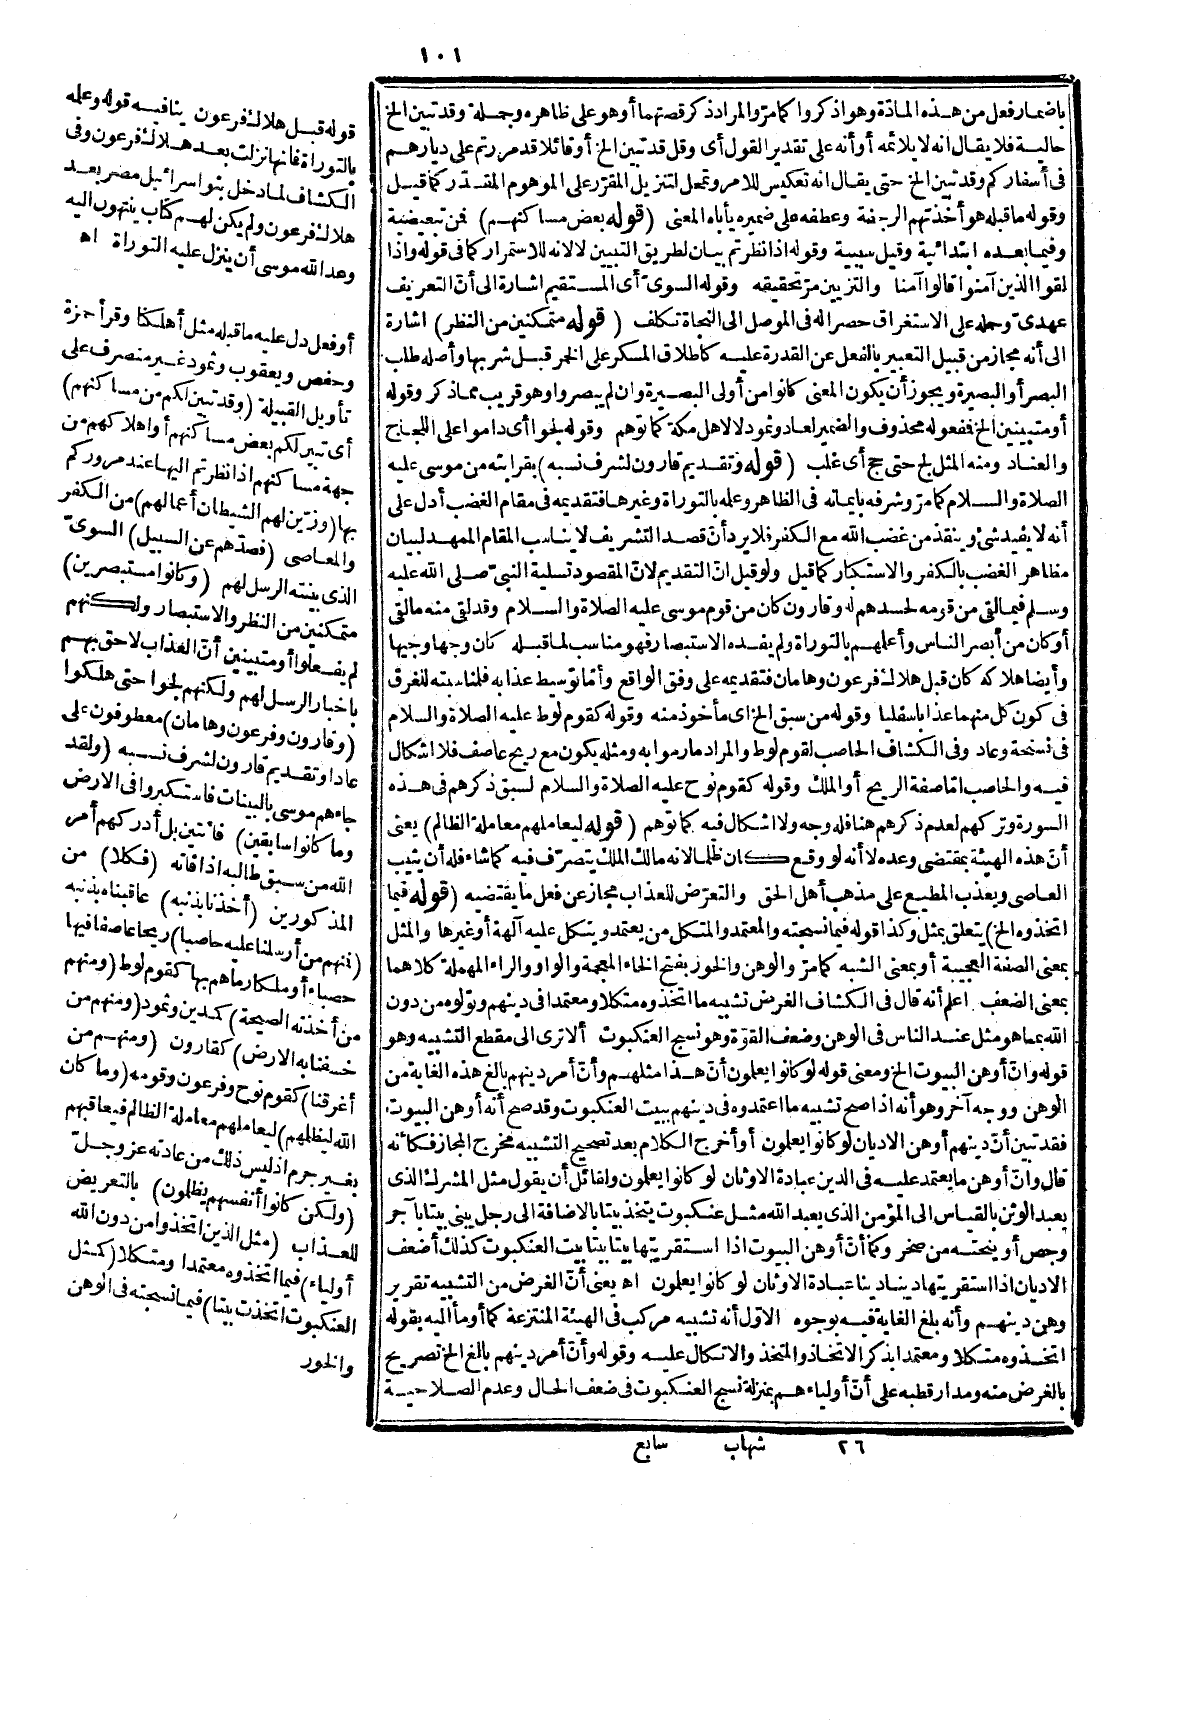 ١٠١
باضمار فعل من هذه المادة وهو اذكروا كما مرّ والمراد ذكر قصتهما أو هو على ظاهره وجملة وقد تبين الخ
حالية فلا يقال انه لا يلائمه أو أنه على تقدير القول أى وقل قد تبين الخ أو قائلا قد مررتم على ديارهم
فى أسفاركم وقد تبين الخ حتى يقال انه تعكيس للامر وتمحل لتنزيل المقرّر على الموهوم المقدّر كما قيل
وقوله ما قبله هو أخذتهم الرجفة وعطفه على ضميره يأباه المعنى (قوله بعض مساكنهم) فمن تبعيضية
وفيما بعده ابتدائية وقيل سببية وقوله اذا نظرتم بيان لطريق التبيين لا لانه للاستمرار كما فى قوله واذا
لقوا الذين آمنوا قالوا آمنا والتزيين مرّ تحقيقه وقوله السوىّ أى المستقيم اشارة الى أنّ التعريف
عهدىّ وحمله على الاستغراق حصرا له فى الموصل الى النجاة تكلف (قوله متمكنين من النظر) اشارة
الى أنه مجاز من قبيل التعبير بالفعل عن القدرة عليه كاطلاق المسكر على الخمر قبل شربها وأصله طلب
البصر أو البصيرة ويجوز أن يكون المعنى كانوا من أولى البصيرة وان لم يبصروا وهو قريب مما ذكر وقوله
أو متبينين الخ فمفعوله محذوف والضمير لعاد وثمود لا لاهل مكة كما توهم وقوله لجوا أى داموا على اللجاج
والعناد ومنه المثل لج حتى حج أى غلب (قوله وتقديم قارون لشرف نسبه) بقرابته من موسى عليه
الصلاة والسلام كما مرّ وشرفه بايمانه فى الظاهر وعلمه بالتوراة وغيرها فتقديمه فى مقام الغضب أدل على
أنه لا يفيد شئ وينقذ من غضب الله مع الكفر فلا يرد أنّ قصد التشريف لا يناسب المقام الممهد لبيان
مظاهر الغضب بالكفر والاستكبار كما قيل ولو قيل انّ التقديم لانّ المقصود تسلية النبىّ صلى الله عليه
وسلم فيما لقى من قومه لحسدهم له وقارون كان من قوم موسى عليه الصلاة والسلام وقد لقى منه مالقى
أو كان من أبصر الناس وأعلمهم بالتوراة ولم يفده الاستبصار فهو مناسب لما قبله كان وجها وجيها
وأيضا هلاكه كان قبل هلاك فرعون وهامان فتقديمه على وفق الواقع وأمّا توسيط عذابه فلمناسبته للغرق
فى كون كل منهما عذابا سفليا وقوله من سبق الخ اى مأخوذ منه وقوله كقوم لوط عليه الصلاة والسلام
فى نسخة وعاد وفى الكشاف الحاصب لقوم لوط والمراد ما رموا به ومثله يكون مع ريح عاصف فلا اشكال
فيه والحاصب امّا صفة الريح أو الملك وقوله كقوم نوح عليه الصلاة والسلام لسبق ذكرهم فى هذه
السورة وتركهم لعدم ذكرهم هنا فله وجه ولا اشكال فيه كما توهم (قوله ليعاملهم معاملة الظالم) يعنى
أنّ هذه الهيئة بمقتضى وعده لا أنه لو وقع كان ظلما لانه مالك الملك يتصرّف فيه كما شاء فله أن يثيب
العاصى ويعذب المطيع على مذهب أهل الحق والتعرّض للعذاب مجاز عن فعل ما يقتضيه (قوله فيما
اتخذوه الخ) يتعلق بمثل وكذا قوله فيما نسجته والمعتمد والمتكل من يعتمد ويتكل عليه آلهة أو غيرها والمثل
بمعنى الصفة العجيبة أو بمعنى الشبه كما مرّ والوهن والخور بفتح الخاء المعجمة والواو والراء المهملة كلاهما
بمعنى الضعف اعلم أنه قال فى الكشاف الغرض تشبيه ما اتخذوه متكلا ومعتمدا فى دينهم وتولوه من دون
الله بما هو مثل عند الناس فى الوهن وضعف القوّة وهو نسج العنكبوت ألا ترى الى مقطع التشبيه وهو
قوله وانّ أوهن البيوت الخ ومعنى قوله لو كانوا يعلمون أنّ هذا مثلهم وأنّ أمر دينهم بالغ هذه الغاية من
الوهن ووجه آخر وهو أنه اذا صح تشبيه ما اعتمدوه فى دينهم ببيت العنكبوت وقد صح أنه أوهن البيوت
فقد تبين أنّ دينهم أوهن الاديان لو كانوا يعلمون أو أخرج الكلام بعد تصحيح التشبيه مخرج المجاز فكأنه
قال وانّ أوهن ما يعتمد عليه فى الدين عبادة الاوثان لو كانوا يعلمون ولقائل أن يقول مثل المشرك الذى
يعبد الوثن بالقياس الى المؤمن الذى يعبد الله مثل عنكبوت يتخذ بيتا بالاضافة الى رجل يبنى بيتا بآجر
وجص أو ينحته من صخر وكما أنّ أوهن البيوت اذا استقريتها بيتا بيتا بيت العنكبوت كذلك أضعف
الاديان اذا استقريتها دينا دينا عبادة الاوثان لو كانوا يعلمون اه يعنى أنّ الغرض من التشبيه تقرير
وهن دينهم وأنه بلغ الغاية فيه بوجوه الاوّل أنه تشبيه مركب فى الهيئة المنتزعة كما أومأ اليه بقوله
اتخذوه متكلا ومعتمدا بذكر الاتخاذ والمتخذ والاتكال عليه وقوله وأنّ أمر دينهم بالغ الخ تصريح
بالغرض منه ومدار قطبه على أنّ أولياءهم بمنزلة نسج العنكبوت فى ضعف الحال وعدم الصلاحية
٢٦ شهاب سابع
قوله قبل هلاك فرعون ينافيه قوله وعلمه
بالتوراة فانها نزلت بعد هلاك فرعون وفى
الكشاف لما دخل بنو اسرائيل مصر بعد
هلاك فرعون ولم يكن لهم كتاب ينتهون اليه
وعد الله موسى أن ينزل عليه التوراة اه
أو فعل دل عليه ما قبله مثل أهلكنا وقرأ حمزة
وحفص ويعقوب وثمود غير منصرف على
تأويل القبيلة (وقد تبين لكم من مساكنهم)
أى تبين لكم بعض مساكنهم أو اهلاكهم من
جهة مساكنهم اذا نظرتم اليها عند مروركم
بها (وزين لهم الشيطان أعمالهم) من الكفر
والمعاصى (فصدّهم عن السبيل) السوىّ
الذى بينته الرسل لهم (وكانوا مستبصرين)
متمكنين من النظر والاستبصار ولكنهم
لم يفعلوا أو متبينين أنّ العذاب لاحق بهم
باخبار الرسل لهم ولكنهم لجوا حتى هلكوا
(وقارون وفرعون وهامان) معطوفون على
عادا وتقديم قارون لشرف نسبه (ولقد
جاءهم موسى بالبينات فاستكبروا فى الارض
وما كانوا سابقين) فائتين بل أدركهم أمر
الله من سبق طالبه اذا فاته (فكلا) من
المذكورين (أخذنا بذنبه) عاقبناه بذنبه
(فمنهم من أرسلنا عليه حاصبا) ريحا عاصفا فيها
حصباء أو ملكا رماهم بها كقوم لوط (ومنهم
من أخذته الصيحة) كمدين وثمود (ومنهم من
خسفنا به الارض) كقارون (ومنهم من
أغرقنا) كقوم نوح وفرعون وقومه (وما كان
الله ليظلمهم) ليعاملهم معاملة الظالم فيعاقبهم
بغير جرم اذ ليس ذلك من عادته عز وجلّ
(ولكن كانوا أنفسهم يظلمون) بالتعريض
للعذاب (مثل الذين اتخذوا من دون الله
أولياء) فيما اتخذوه معتمدا ومتكلا (كمثل
العنكبوت اتخذت بيتا) فيما نسجته فى الوهن
والخور